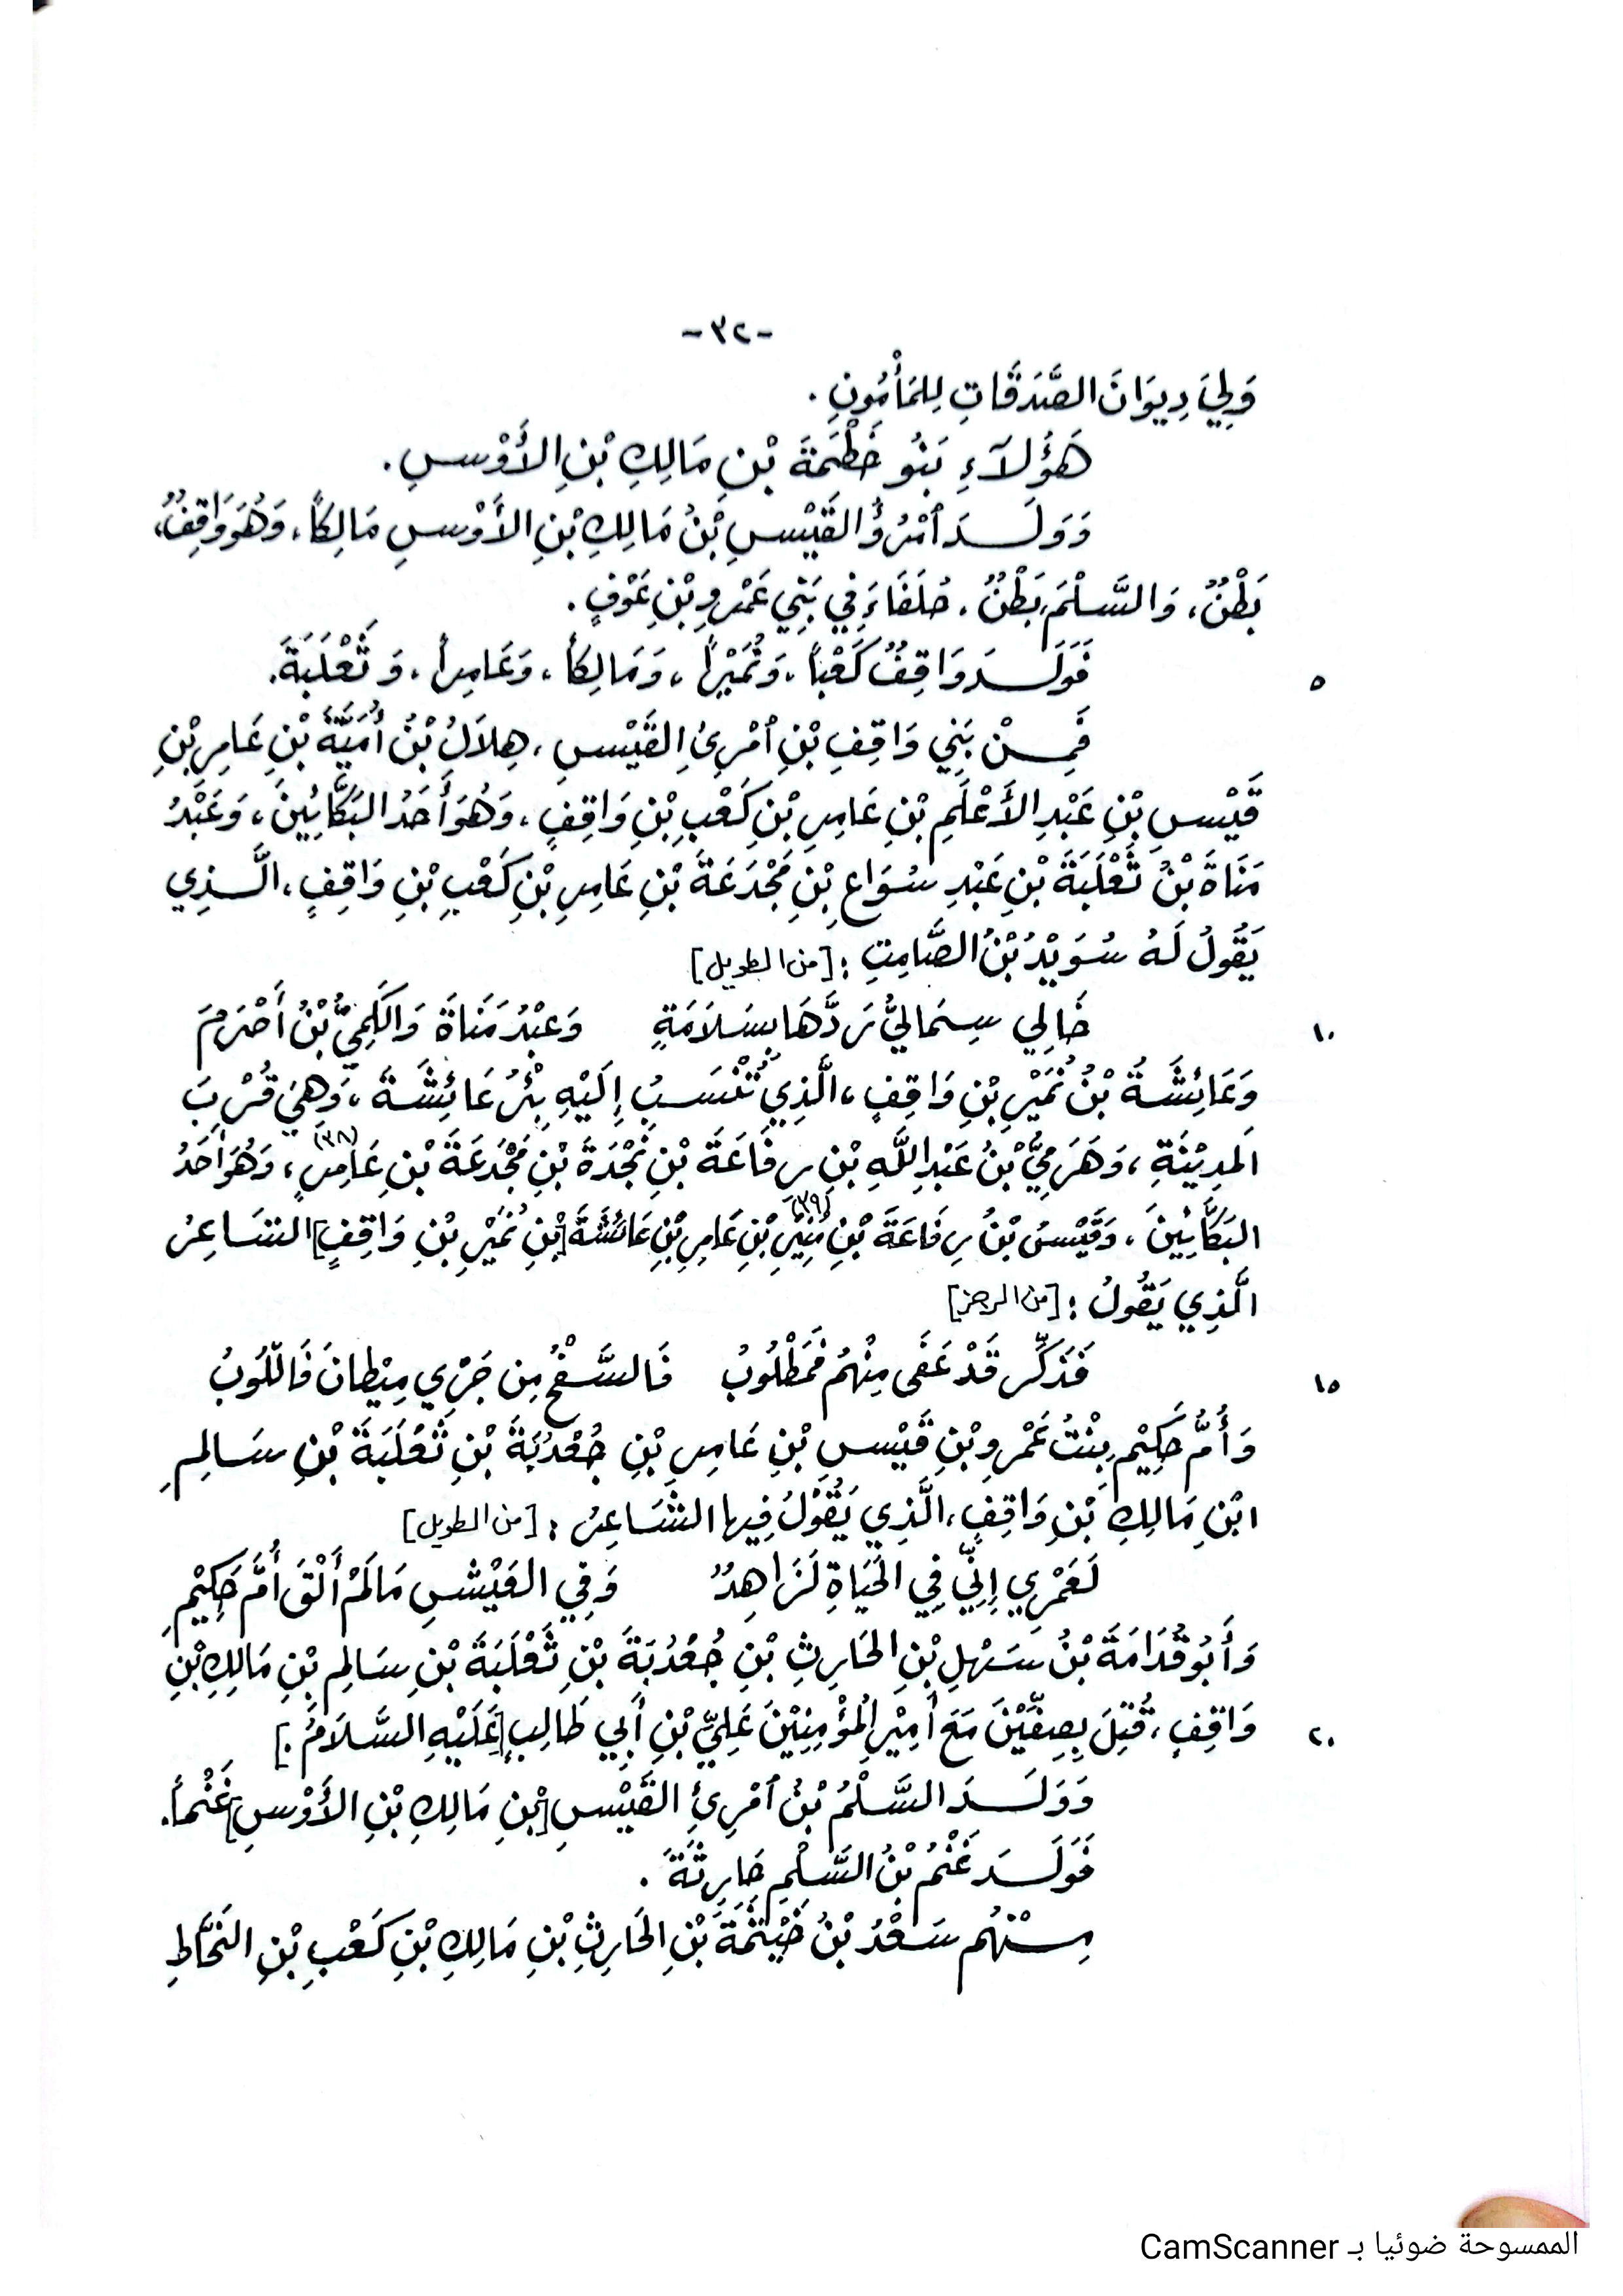 -٣٢-
وَلِيَ دِيوَانَ الصَّدَقَاتِ لِلمَأْمُونِ .
هَؤُلاَءِ بَنُو خَطْمَةَ بْنِ مَالِكِ بْنِ الأَوْسِ .
وَوَلَدَ ٱمْرُؤُ القَيْسِ بْنُ مَالِكِ بْنِ الأَوْسِ مَالِكاً، وَهُوَ وَاقِفٌ،
بَطْنٌ، وَالسَّلْمَ، بَطْنٌ، حُلَفَاءَ فِي بَنِي عَمْرِو بْنِ عَوْفٍ .
٥ فَوَلَدَ وَاقِفٌ كَعْباً، وَنُمَيْراً، وَمَالِكاً، وَعَامِراً، وَثَعْلَبَةَ.
فَمِنْ بَنِي وَاقِفِ بْنِ ٱمْرِئِ القَيْسِ، هِلاَلُ بْنُ أُمَيَّةَ بْنِ عَامِرِ بْنِ
قَيْسِ بْنِ عَبْدِ الأَعْلَمِ بْنِ عَامِرِ بْنِ كَعْبِ بْنِ وَاقِفٍ، وَهُوَ أَحَدُ البَكَّائِينَ، وَعَبْدُ
مَنَاةَ بْنُ ثَعْلَبَةَ بْنِ عَبْدِ سُوَاعِ بْنِ مَجْدَعَةَ بْنِ عَامِرِ بْنِ كَعْبِ بْنِ وَاقِفٍ، الَّذِي
يَقُولُ لَهُ سُوَيْدُ بْنُ الصَّامِتِ : [من الطويل]
١٠ خَالِي سِمَاليُّ رَدَّهَا بِسَلاَمَةٍ وَعَبْدُ مَنَاةَ وَالكَمِيُّ بْنُ أَصْرَمَ
وَعَائِشَةُ بْنُ نُمَيْرِ بْنِ وَاقِفٍ، الَّذِي تُنْسَبُ إِلَيْهِ بِئْرُ عَائِشَةَ، وَهِيَ قُرْبَ
المَدِيْنَةِ، وَهَرَمِيُّ بْنُ عَبْدِ اللَّهِ بْنِ رِفَاعَةَ بْنِ نَجْدَةَ بْنِ مَجْدَعَةَ بْنِ عَامِرٍ(٣٨)، وَهُوَ أَحَدُ
البَكَّائِينَ، وَقَيْسُ بْنُ رِفَاعَةَ بْنِ مُنِيْرِ(٣٩) بْنِ عَامِرِ بْنِ عَائِشَةَ [بْنِ نُمَيْرِ بْنِ وَاقِفٍ] الشَاعِرُ
الَّذِي يَقُولُ : [من الرجز]
١٥ فَذَكِّر قَدْ عَفَى مِنْهُمْ فَمَطْلُوبُ فَالسَّفْحُ مِن جَرْيِ مِيْطانَ فَاللّوبُ
وَأُمُّ حَكِيْمٍ بِنْتُ عَمْرِو بْنِ قَيْسِ بْنِ عَامِرِ بْنِ جُعْدُبَةَ بْنِ ثَعْلَبَةَ بْنِ سَالِمِ
ابْنِ مَالِكِ بْنِ وَاقِفٍ، الَّذِي يَقُوْلُ فِيها الشَّاعِرُ : [من الطويل]
لَعَمْرِي إِنِّي فِي الحَيَاةِ لَزَاهِدٌ وَفِي العَيْشِ مَا لَمْ أَلْقَ أُمَّ حَكِيْمِ
وَأَبُو قُدَامَةَ بْنُ سَهْلِ بْنِ الحَارِثِ بْنِ جُعْدُبَةَ بْنِ ثَعْلَبَةَ بْنِ سَالِمِ بْنِ مَالِكِ بْنِ
٢٠ وَاقِفٍ، قُتِلَ بِصِفِّيْنَ مَعَ أَمِيْرِ المُؤْمِنِيْنَ عَلِيِّ بْنِ أَبِي طَالِبٍ [عَلَيْهِ السَّلاَمُ.]
وَوَلَدَ السَّلْمُ بْنُ ٱمْرِئِ القَيْسِ [بْنِ مَالِكِ بْنِ الأَوْسِ] غَنْماً.
فَوَلَدَ غَنْمُ بْنُ السَّلْمِ حَارِثَةَ .
مِنْهُم سَعْدُ بْنُ خَيْثَمَةَ بْنِ الحَارِثِ بْنِ مَالِكِ بْنِ كَعْبِ بْنِ النَحَّاطِ
الممسوحة ضوئيا بـ CamScanner